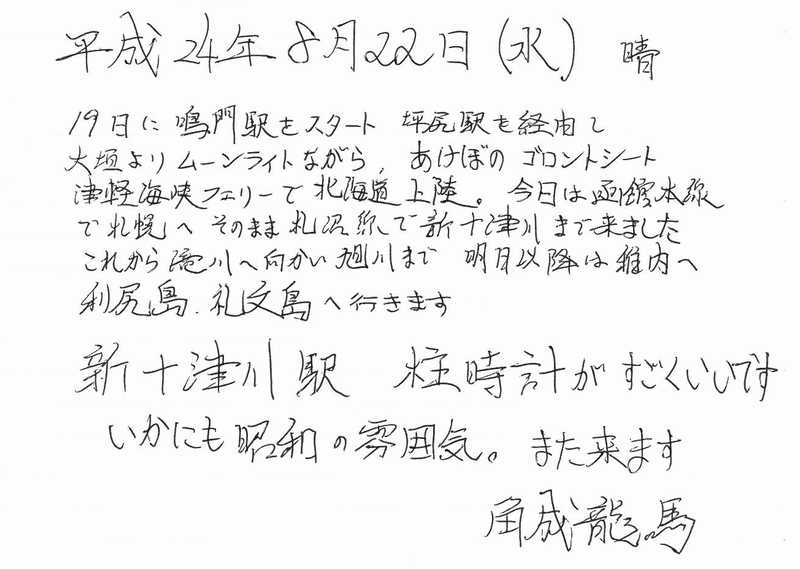 平成24年8月22日(水) 晴
19日に鳴門駅をスタート 坪尻駅を経由して
大垣よりムーンライトながら, あけぼのゴロントシート
津軽海峡フェリーで北海道上陸。今日は函館本線
で札幌へ そのまま札沼線で新十津川まで来ました
これから滝川へ向かい旭川まで 明日以降は稚内へ
利尻島.礼文島へ行きます
新十津川駅 柱時計がすごくいいです
いかにも昭和の雰囲気。また来ます
角成龍馬